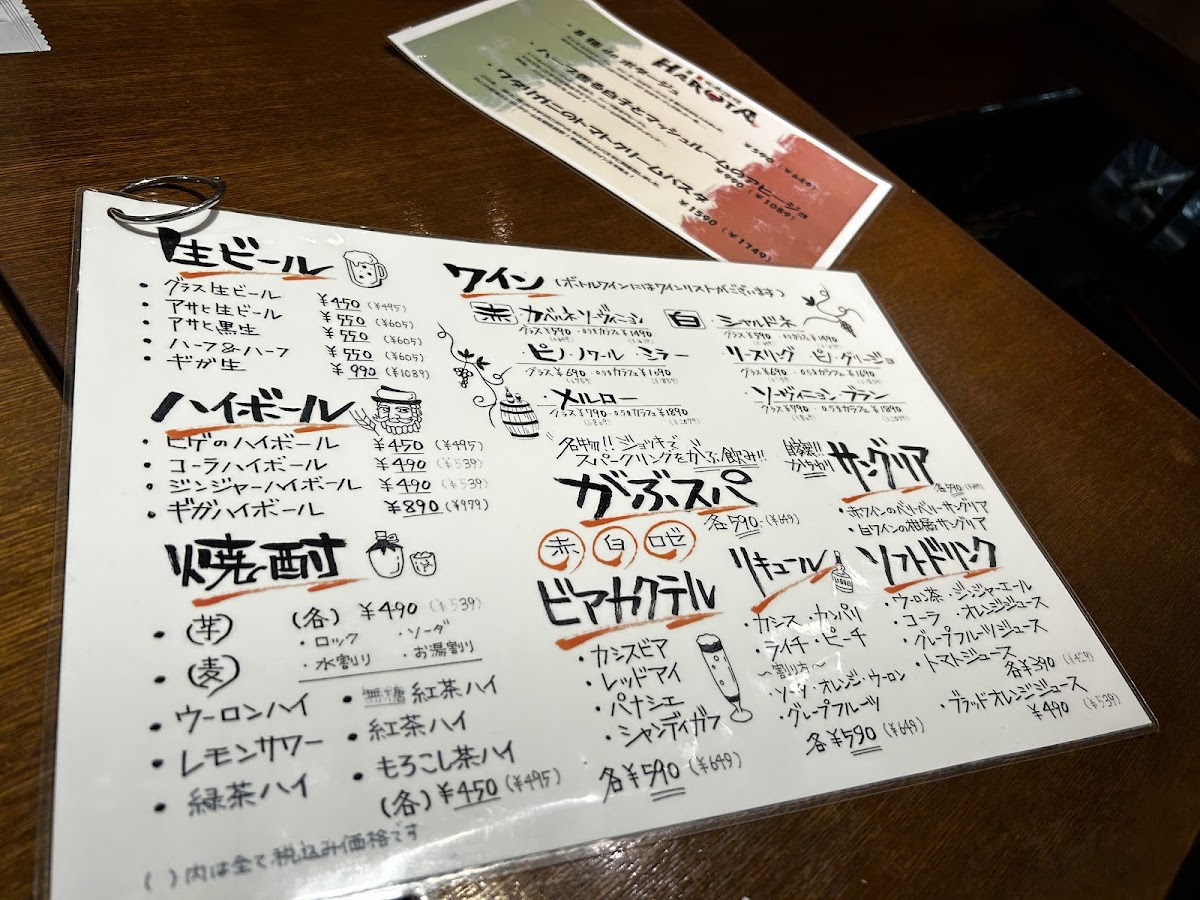 HAROTA
ポタージュ
¥590 (¥649)
ハーブ香る白子とマッシュルームのアヒージョ
¥990 (¥1089)
ワタリガニのトマトクリームパスタ
¥1590 (¥1749)
生ビール
・グラス生ビール ¥450 (¥495)
・アサヒ生ビール ¥550 (¥605)
・アサヒ黒生 ¥550 (¥605)
・ハーフ&ハーフ ¥550 (¥605)
・ギガ生 ¥990 (¥1089)
ハイボール
・ヒゲのハイボール ¥450 (¥495)
・コーラハイボール ¥490 (¥539)
・ジンジャーハイボール ¥490 (¥539)
・ギガハイボール ¥890 (¥979)
焼酎
(各) ¥490 (¥539)
・芋
・麦
・ロック ・ソーダ
・水割り ・お湯割り
・ウーロンハイ
・レモンサワー
・緑茶ハイ
・無糖紅茶ハイ
・紅茶ハイ
・もろこし茶ハイ
(各) ¥450 (¥495)
( )内は全て税込み価格です
ワイン (ボトルワインにはワインリストがございます)
赤 カベルネ・ソーヴィニヨン
グラス¥590 ・0.5ℓカラフェ¥1490
・ピノ・ノワール ミラー
グラス¥690 ・0.5ℓカラフェ¥1690
・メルロー
グラス¥790 ・0.5ℓカラフェ¥1890
白 ・シャルドネ
グラス¥590 ・0.5ℓカラフェ¥1490
・リースリング ピノ・グリージョ
グラス¥690 ・0.5ℓカラフェ¥1690
ソーヴィニヨン・ブラン
グラス¥790 ・0.5ℓカラフェ¥1890
名物!!ジョッキで
スパークリングをがぶ飲み!!
がぶスパ
各590 (¥649)
赤 白 ロゼ
自家製!!
サングリア
各590
・赤ワインのベリーベリーサングリア
・白ワインの柑橘サングリア
ビアカクテル
・カシスビア
・レッドアイ
・パナシェ
・シャンディガフ
各¥590 (¥649)
リキュール
・カシス ・カンパリ
・ライチ ・ピーチ
〜割り方〜
・ソーダ ・オレンジ ・ウーロン
・グレープフルーツ
各¥590 (¥649)
ソフトドリンク
・ウーロン茶 ・ジンジャーエール
・コーラ オレンジジュース
・グレープフルーツジュース
・トマトジュース
各¥390 (¥429)
・ブラッドオレンジジュース
¥490 (¥539)